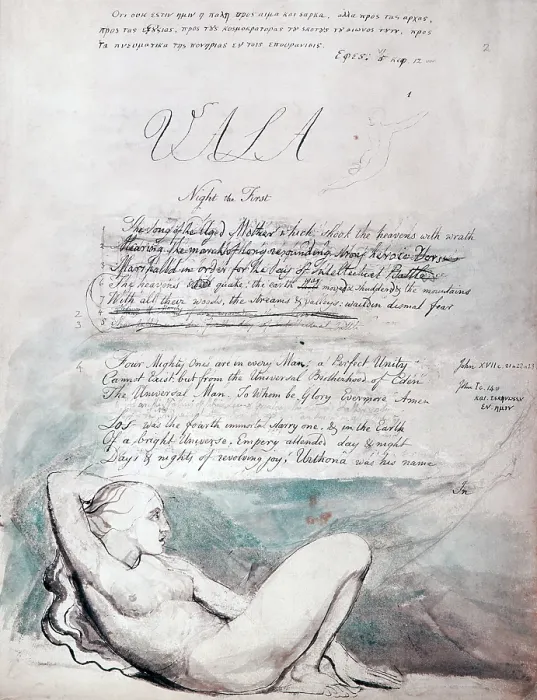 Οτι ουκ εστιν ημιν η παλη προς αιμα και σαρκα, αλλα προς τας αρχας,
προς τας εξουσιας, προς τους κοσμοκρατορας του σκοτους του αιωνος τουτου, προς
τα πνευματικα της πονηριας εν τοις επουρανιοις.
Εφεσ: κεφ. 12
2
1
VALA
Night the First
The Song of the Aged Mother which shook the heavens with wrath
Hearing the march of long resounding strong heroic Verse
Marshalld in order for the day of Intellectual Battle
The heavens quake: the earth moved & shudderd & the mountains
With all their woods, the streams & valleys: waild in dismal fear
2
3
4
Four Mighty Ones are in every Man; a Perfect Unity
John XVII c. 21 & 22 & 23 v
Cannot Exist, but from the Universal Brotherhood of Eden
John I c. 14 v
The Universal Man. To Whom be Glory Evermore Amen
και. εσκηνωσεν
εν. ημιν
Los was the fourth immortal starry one, & in the Earth
Of a bright Universe, Empery attended day & night
Days & nights of revolving joy, Urthona was his name
In